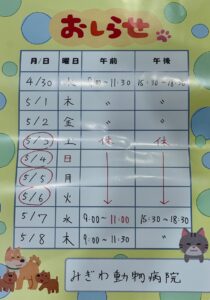 おしらせ
月/日 曜日 午前 午後
4/30 水 9:00~11:30 15:30~18:30
5/1 木 〃 〃
5/2 金 〃 〃
5/3 土 休 休
5/4 日
5/5 月
5/6 火
5/7 水 9:00~11:00 15:30~18:30
5/8 木 9:00~11:30 〃
みぎわ動物病院